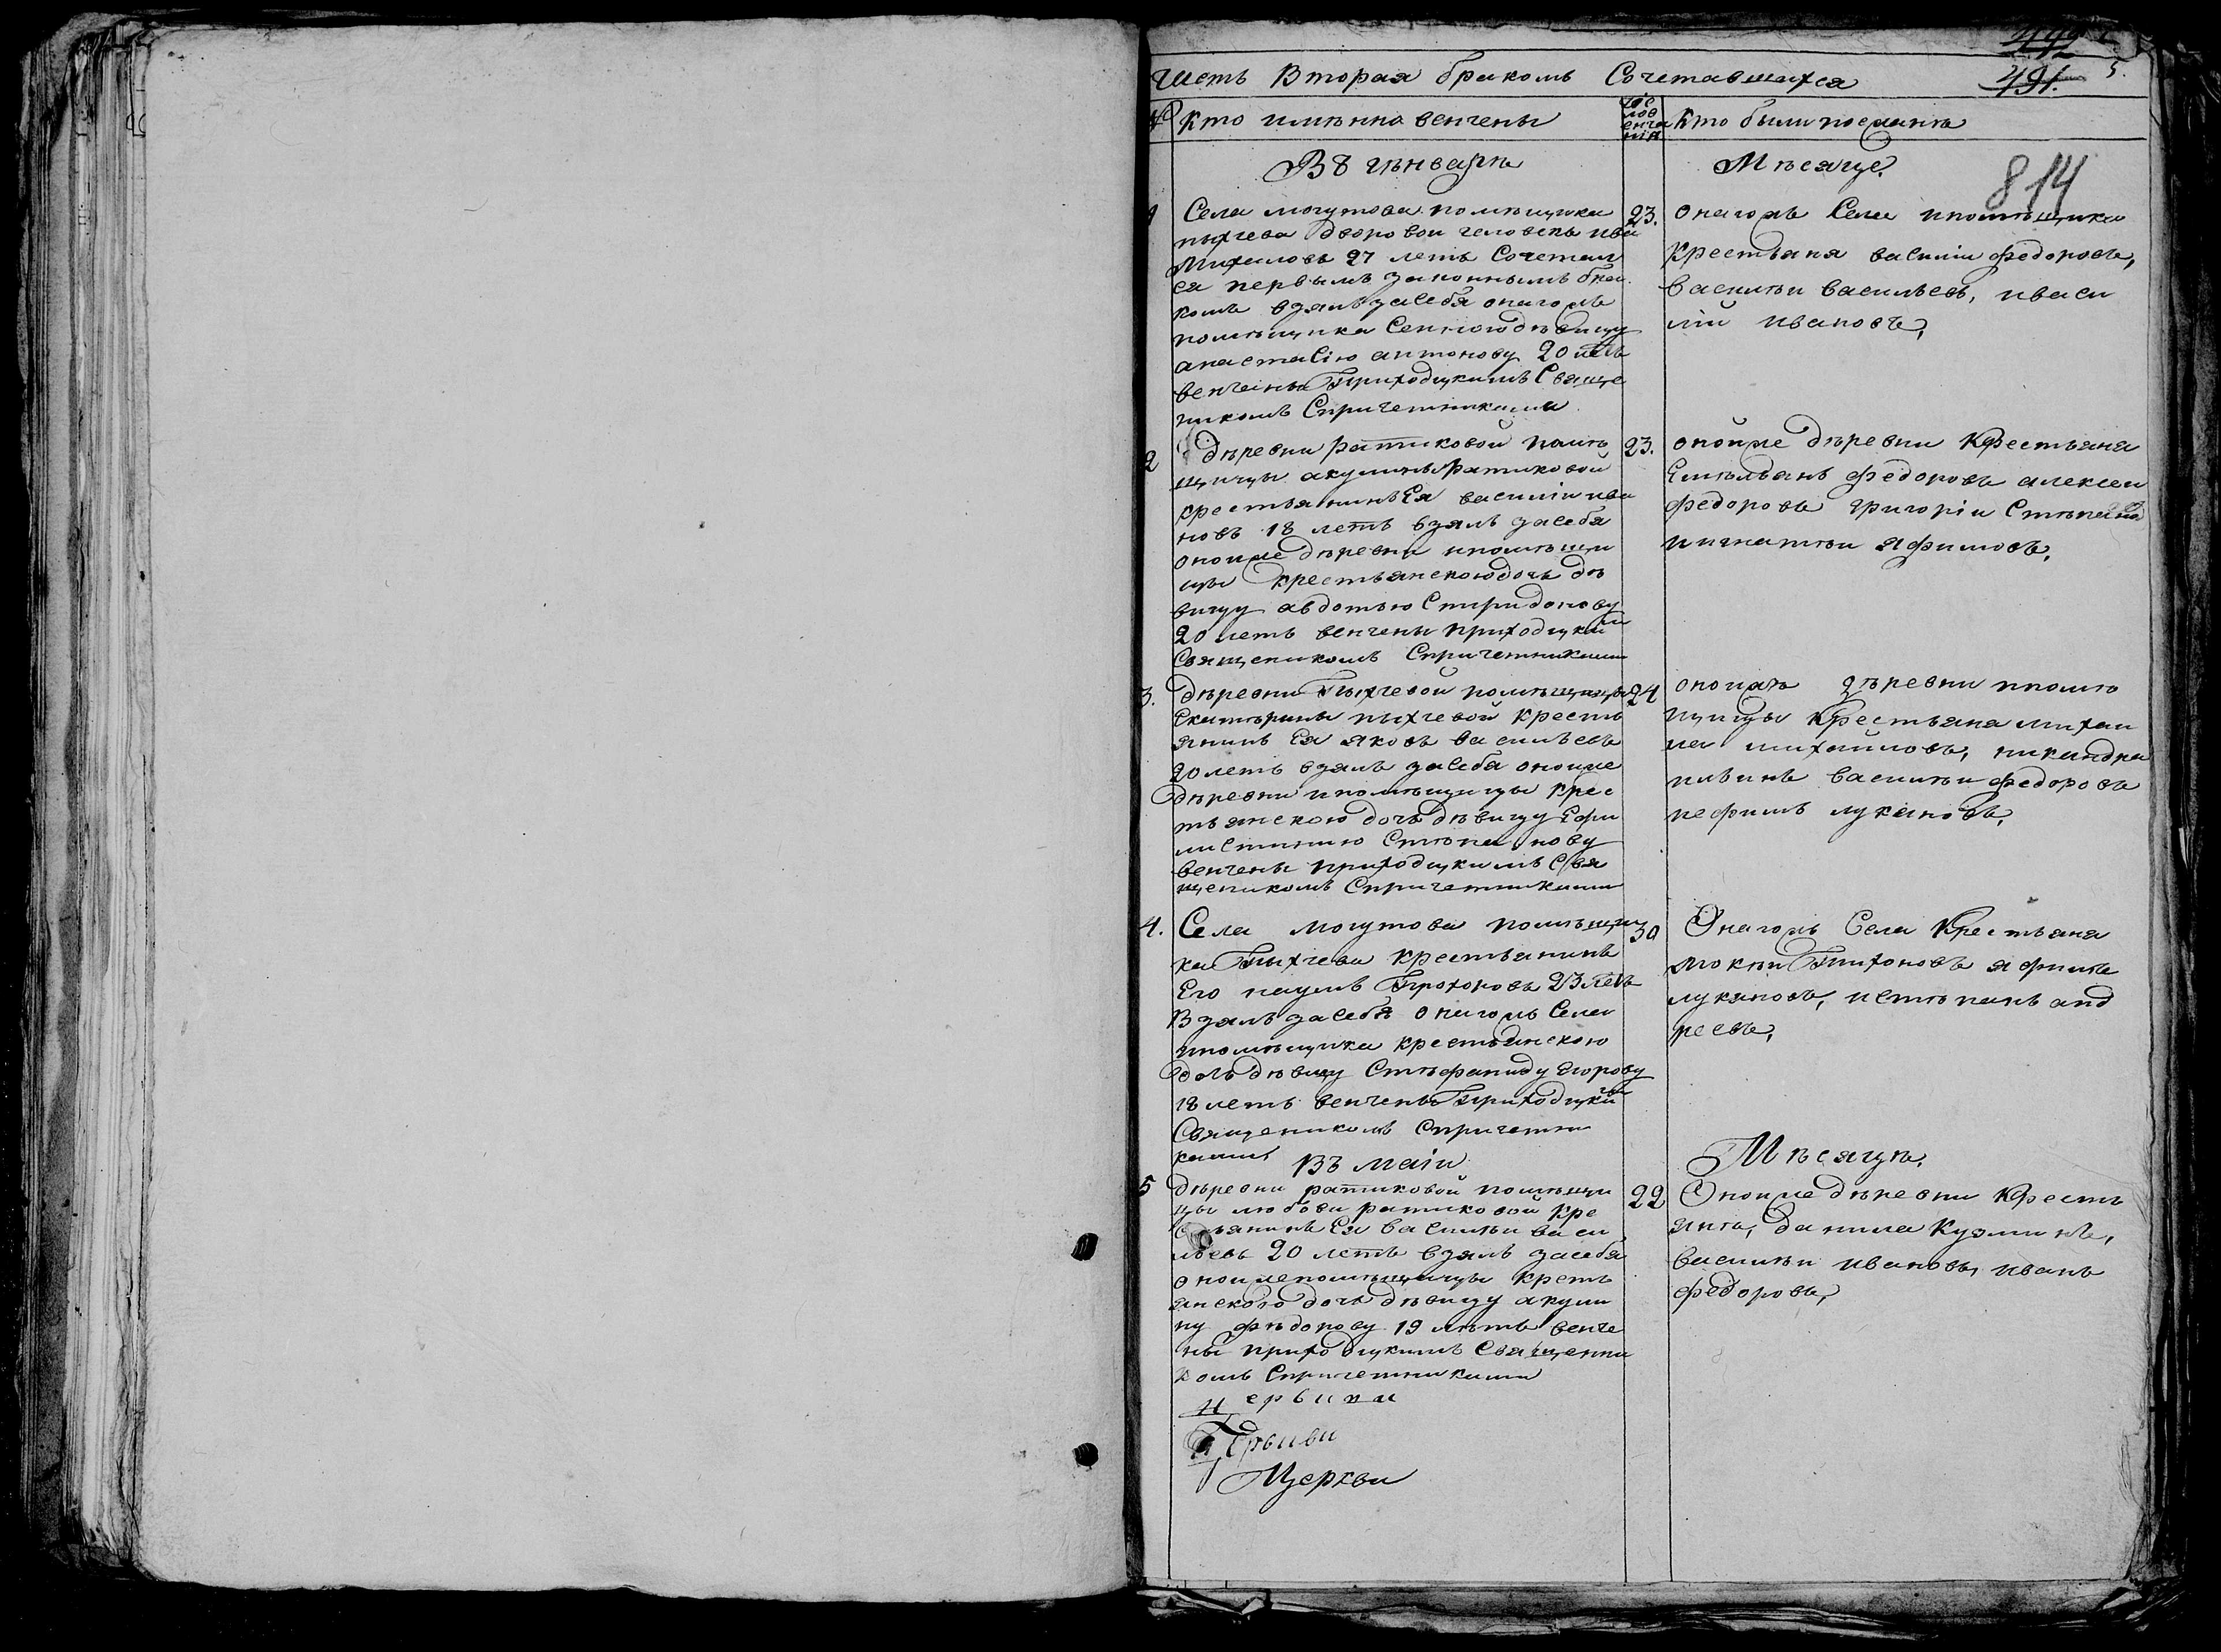 5.
491.
Честь Вторая бракомъ Сочетавшихся
№ Кто имѣнно венчены
Кто были поеманѣ
Въ гѣнварѣ Мѣсяце,
814
1 Села могутова помѣщика
пыхчева дворовои человекъ ива
Михаиловъ 27 летъ Сочетал
ся первымъ законнымъ бра
комъ взялъ засебя онагожъ
помѣщика Сеннюю дѣвицу
анастасiю антонову 20 летъ
венчены Приходцкимъ Свяще
никомъ Спричетниками
23. онагожъ Села ипомѣщика
Крестьяня василiи федоровъ,
василѣи васильевъ, иваси
лiи ивановъ,
2 дѣревни Ратиковой помѣ
щицы акулины Ратиковой
крестьянинъ Ея василiи ива
новъ 18 летъ взялъ засебя
оноиже дѣревни ипомѣщи
цы крестьянскою дочь дѣ
вицу авдотью Спиридонову
20 летъ венчены приходцки
ми
Священикомъ Спричетниками
23. оноиже дѣревни Крестьяня
Емѣльянъ федоровъ алексеи
федоровъ григорiи Стѣпано
иигнатѣи яфимовъ,
3. дѣревни Пыхчевой помѣщицы
Екатѣрины пыхчевой кресть
янинъ Ея яковъ васильевъ
20 летъ взялъ засебя оноиже
дѣревни ипомѣщицы крес
тьянскою дочь дѣвицу Ефи
мистинию Стѣпанову
венчены приходцкимъ Свя
щеникомъ Спричетниками
24 оноижъ дѣревни ипомѣ
щицы крестьяня михаи
ла михайловъ, никандра
ильинъ василѣи федоровъ
иефимъ лукановъ,
4. Села могутова помѣщи
ка Пыхчева крестьянинъ
Его наумъ Прохоровъ 23 летъ
Взялъ засебя онагожъ Села
ипомѣщика крестьянскою
дочь дѣвицу Стѣфаниду Егорову
18 летъ венчены Приходцки
ми
Священикомъ Спричетни
ками
30 Онагожъ Села Крестьяня
мокѣи Тихоновъ яфимъ
лукановъ, истѣпанъ анд
реевъ,
Въ маiи Мѣсяцѣ,
5 дѣревни ратиковой помѣщи
цы любови ратиковой кре
стьянинъ Ея василѣи васи
льевъ 20 летъ взялъ засебя
оноижепомѣщицы кресть
янскою дочь дѣвицу акули
ну фѣдорову 19 лѣтъ венче
ны приходцкимъ Священни
комъ Спричетниками
22 Оноиже дѣревни Кресть
янѣ, данила Кузминъ,
василѣи ивановъ, иванъ
федоровъ,
Церькви
Церькви
Церкви